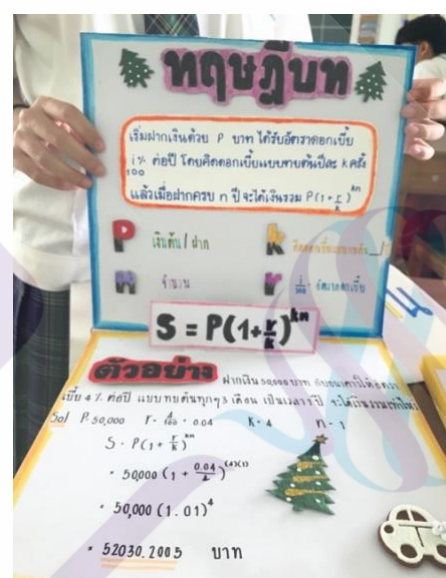 ทฤษฎีบท
เริ่มฝากเงินด้วย P บาท ได้รับอัตราดอกเบี้ย
i% ต่อปี โดยคิดดอกเบี้ยแบบทบต้นปีละ k ครั้ง
100
แล้วเมื่อฝากครบ n ปี จะได้เงินรวม P(1+r/k)^kn
P เงินต้น/ฝาก
k
n จำนวน
r i/100 : อัตราดอกเบี้ย
S = P(1+r/k)^kn
ตัวอย่าง ฝากเงิน 50,000 บาท
เบี้ย 4% ต่อปี แบบทบต้นทุกๆ 3 เดือน เป็นเวลา 1 ปี จะได้เงินรวมเท่าไหร่
Sol P=50,000 r=4/100=0.04 K=4 n=1
S=P(1+r/k)^kn
= 50,000 (1+0.04/4)^(4)(1)
= 50,000 (1.01)^4
= 52030.2005 บาท